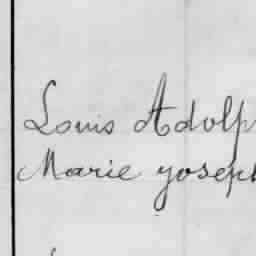 Louis Adolp
Marie Joseph